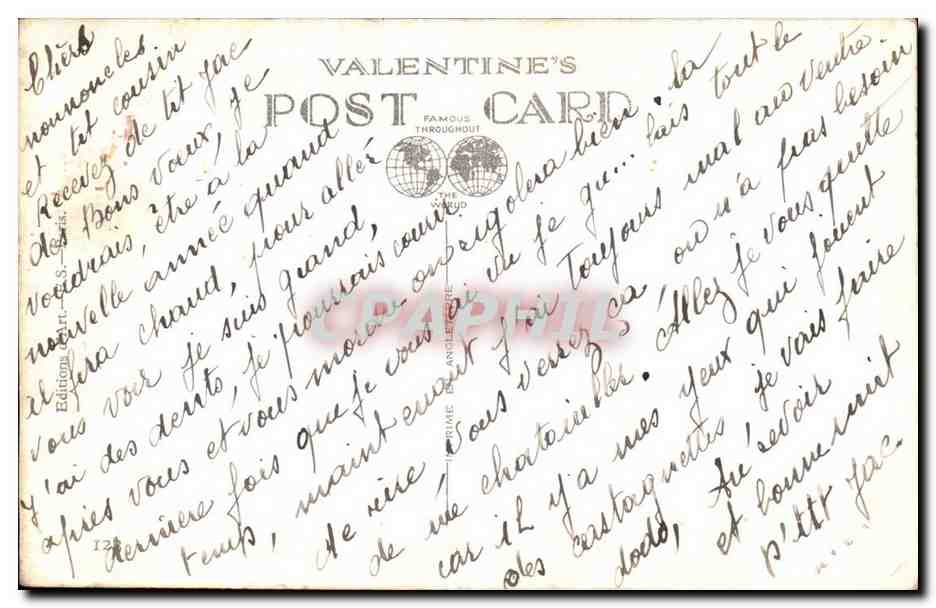 VALENTINE'S
POST CARD
FAMOUS
THROUGHOUT
THE
WORLD
Editions d'Art.
IMPRIMÉ EN ANGLETERRE
CPAPHIL
Chers
nononcles
et tit cousin
Recevez de tit Jac
des Bons Voeux, je
voudrais, être à la
nouvelle année quand
il fera chaud, pour aller
vous voir je suis grand,
J'ai des dents, je pourrais courir
après vous et vous mordre on rigolera bien la
dernière fois que je vous ai vu je qu... lais tout le
temp, maintenant j'ai Toujours mal au ventre
de rire, vous verrez ça, on n'a pas besoin
de me chatouiller. Allez je vous quitte
car il y a mes yeux qui jouent
des castagnettes je vais faire
dodo, Au revoir
et bonne nuit
p'tit Jac.